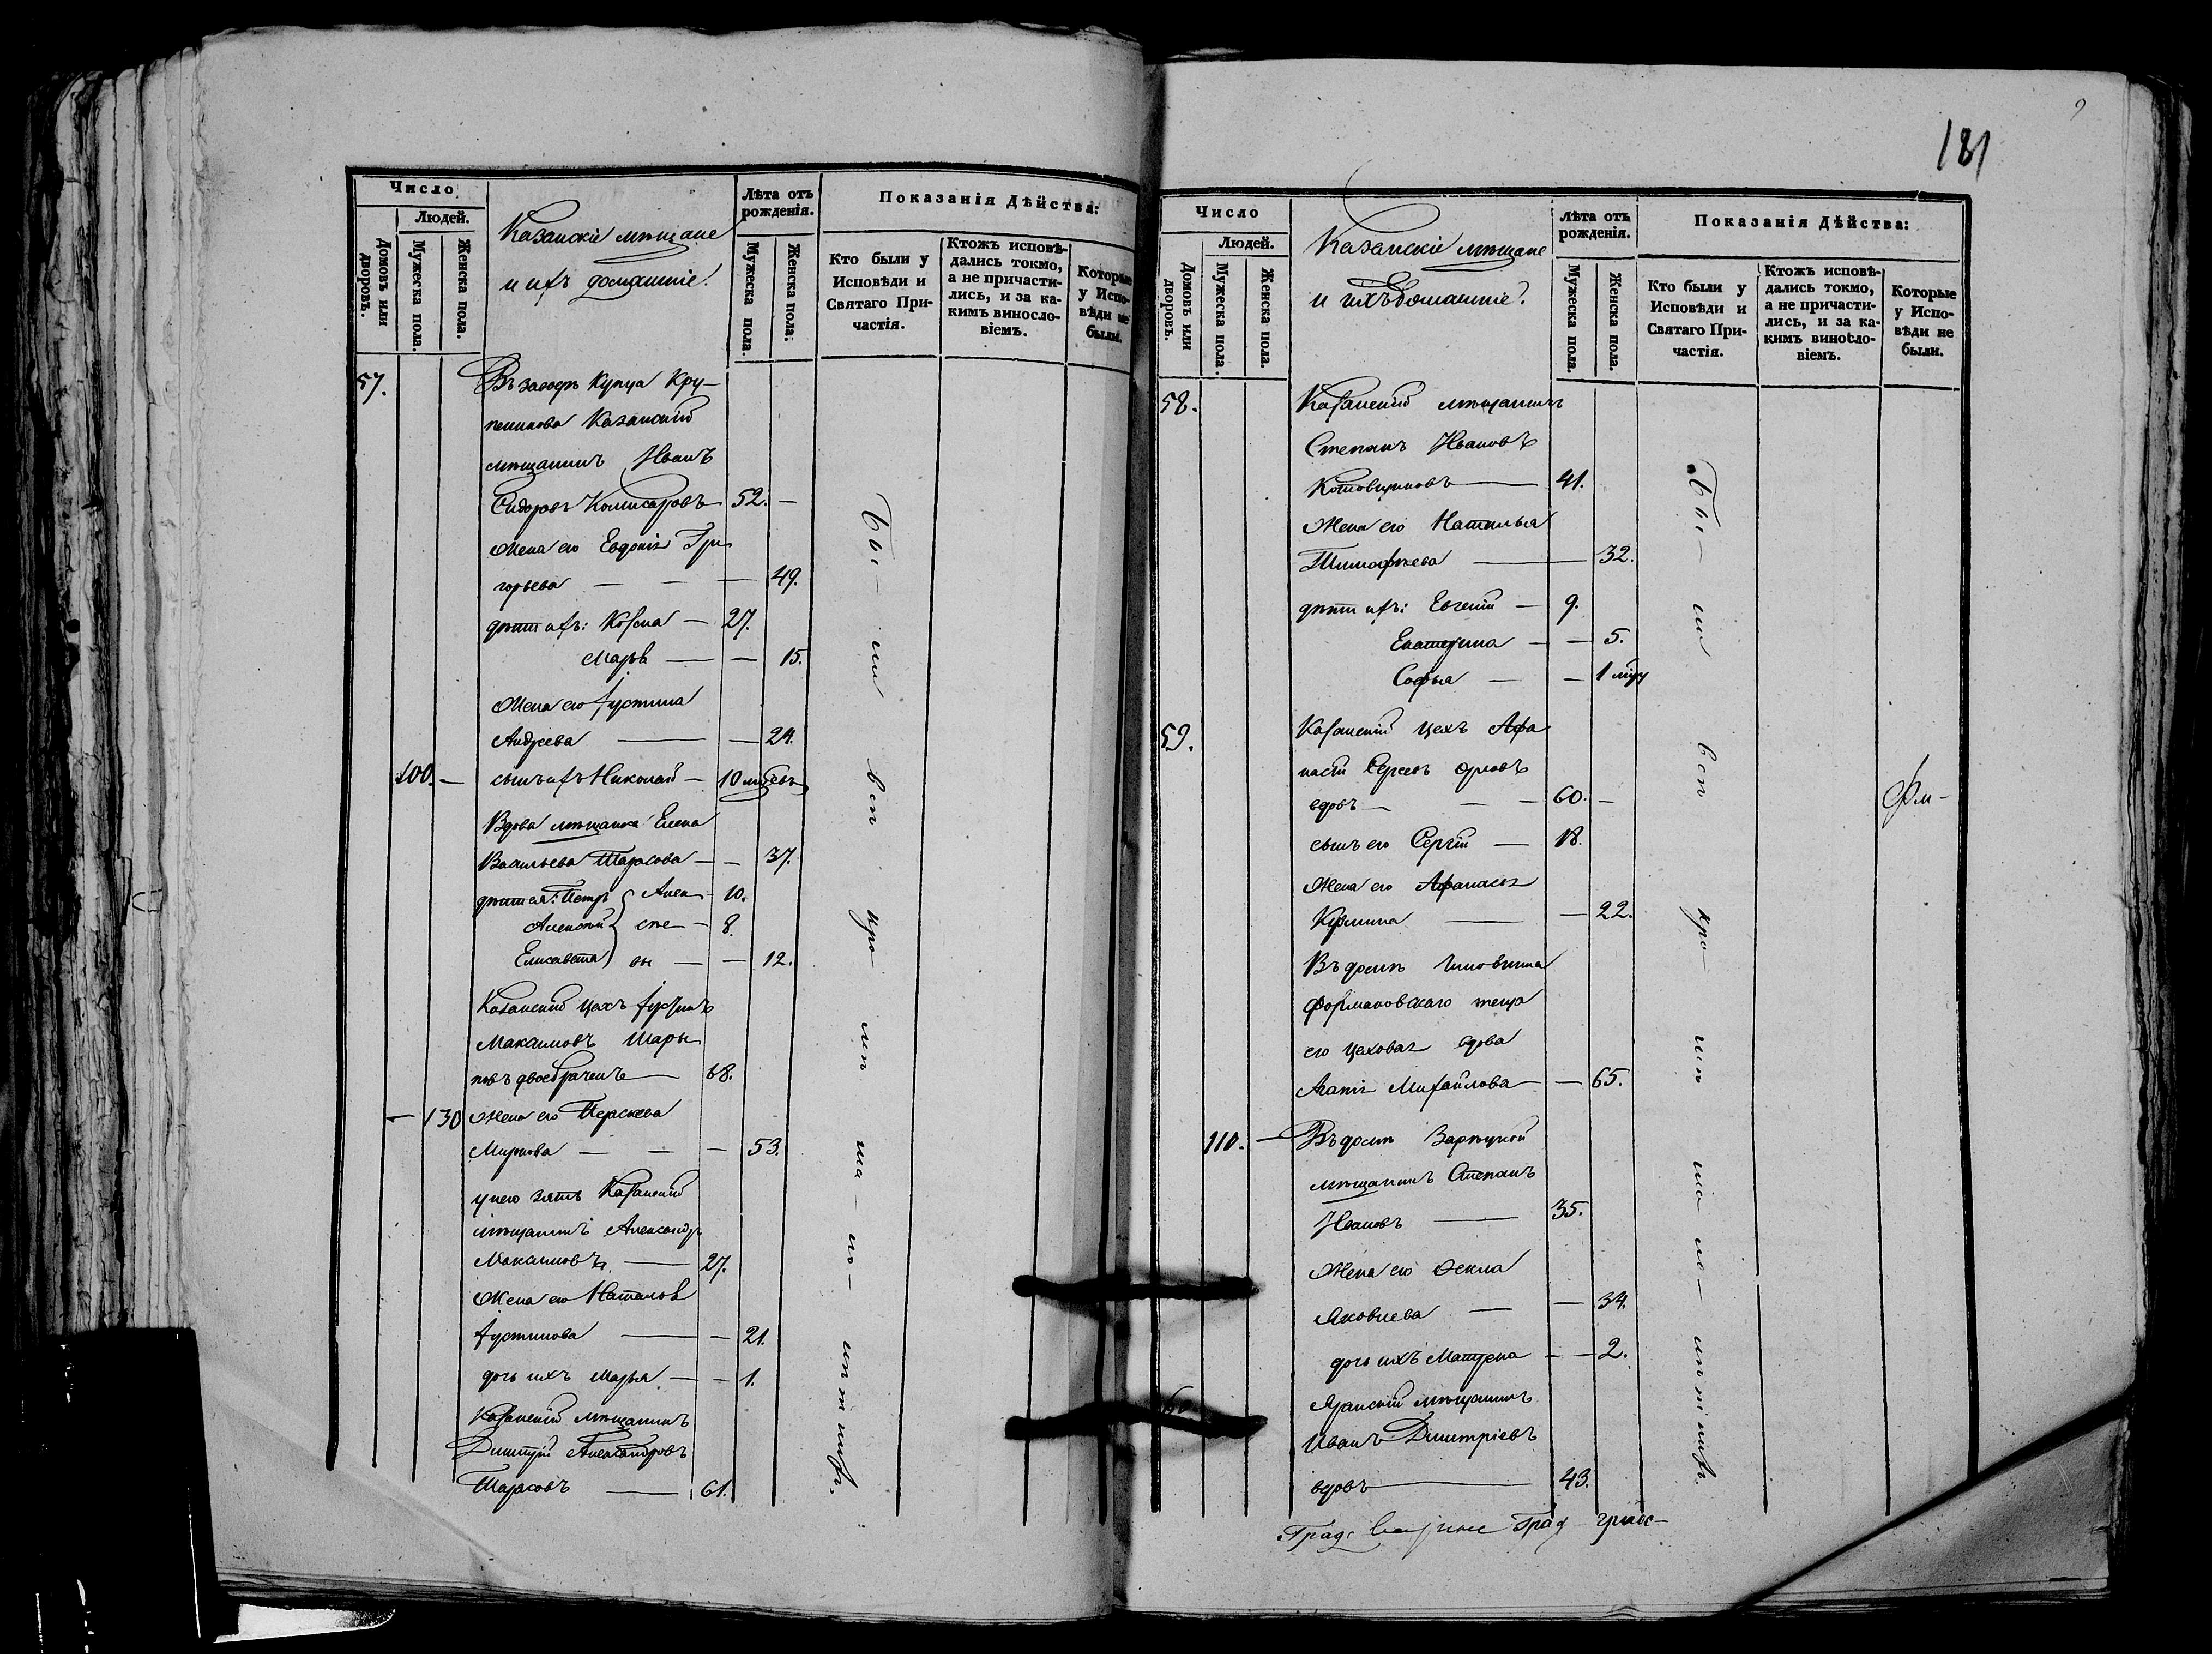 Число
Людей.
Домовъ или дворовъ.
Мужеска пола.
Женска пола.
Казанскіе мѣщане
и ихъ домашніе.
Лѣта отъ рожденія.
Мужеска пола.
Женска пола.
Показанія Дѣйства:
Кто были у Исповѣди и Святаго Причастія.
Ктожъ исповѣдались токмо, а не причастились, и за какимъ винословіемъ.
Которые у Исповѣди не были.
57. Въ заводѣ купца Кру-
пеникова Казанскій
мѣщанинъ Иванъ
Сидоровъ Комисаровъ 52. —
Жена его Евдокія Гри
горьева — — — 49.
дѣти ихъ: Козма — 27.
Марья — — 15.
Жена его Іустина
Андреева — — 24.
100. — сынъ ихъ Николай — 10 мѣсяцевъ
Вдова мѣщанка Елена
Васильева Тарасова — — 37.
дѣти ея: Петръ } Алек — 10.
Алексѣй } сѣе — 8.
Елисавета } вы — — 12.
Казанскій цехъ Іустинъ
Максимовъ Шары
повъ двоебраченъ — 68.
— 130 Жена его Параскева
Миронова — — — 53.
у него зять Казанскій
мѣщанинъ Александръ
Максимовъ — 27.
Жена его Наталья
Іустинова — — 21.
дочь ихъ Марья — — 1.
Казанскій мѣщанинъ
Дмитрій Александровъ
Тарасовъ — 61.
Бы — ли всѣ кро — мѣ ма — ло — лѣтнихъ.
181
Число
Людей.
Домовъ или дворовъ.
Мужеска пола.
Женска пола.
Казанскіе мѣщане
и ихъ домашніе.
Лѣта отъ рожденія.
Мужеска пола.
Женска пола.
Показанія Дѣйства:
Кто были у Исповѣди и Святаго Причастія.
Ктожъ исповѣдались токмо, а не причастились, и за какимъ винословіемъ.
Которые у Исповѣди не были.
58. Казанскій мѣщанинъ
Степанъ Ивановъ
Котовщиковъ — 41.
Жена его Наталья
Тимофѣева — 32.
дѣти ихъ: Евгеній — 9.
Екатерина — — 5.
Софья — — 1
59. Казанскій цехъ Афа
насій Сергеевъ Орловъ
вдовъ — — — 60. —
сынъ его Сергій — 18.
Жена его Афанасія
Кузмина — — 22.
Въ домѣ чиновника
Формаковскаго теща
его цеховая вдова
Агапія Михайлова — — 65.
110. — Въ домѣ Зарѣцкой
мѣщанинъ Степанъ
Ивановъ — 35.
Жена его Ѳекла
Яковлева — — 34.
дочь ихъ Матрена — — 2.
60. Яранскій мѣщанинъ
Иванъ Дмитріевъ
вдовъ — 43.
Бы — ли всѣ кро — мѣ ма ло — лѣтнихъ.